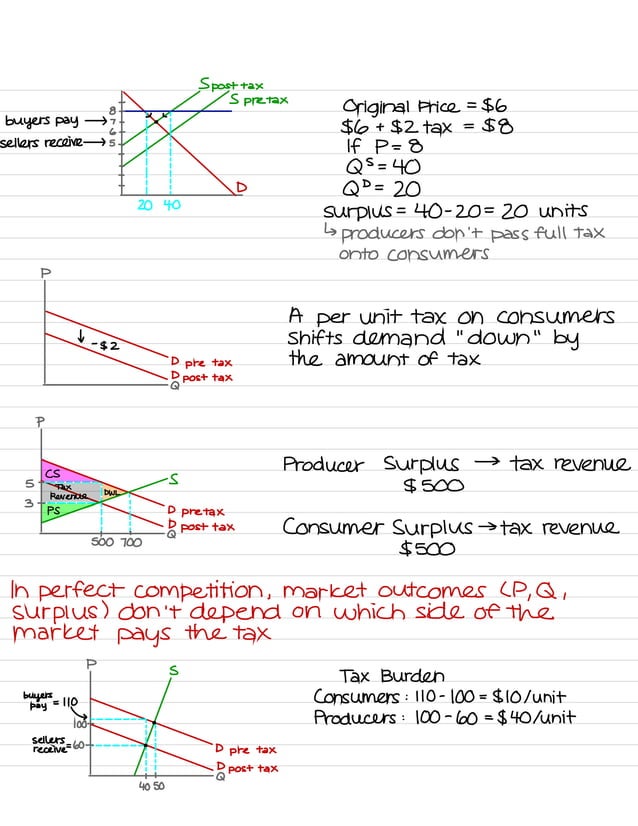 S post tax
S pre tax
8
buyers pay → 7
6
sellers receive → 5
D
20 40
Original Price = $6
$6 + $2 tax = $8
If P = 8
Qˢ = 40
Qᴰ = 20
surplus = 40 - 20 = 20 units
↳ producers don't pass full tax
onto consumers
P
↓ -$2
D pre tax
D post tax
Q
A per unit tax on consumers
shifts demand "down" by
the amount of tax
P
CS
S
5
Tax
Revenue
DWL
3
PS
D pre tax
D post tax
Q
500 700
Producer Surplus → tax revenue
$500
Consumer Surplus → tax revenue
$500
In perfect competition, market outcomes (P, Q,
surplus) don't depend on which side of the
market pays the tax
P
S
buyers
pay = 110
100
sellers
receive = 60
D pre tax
D post tax
Q
40 50
Tax Burden
Consumers: 110 - 100 = $10/unit
Producers: 100 - 60 = $40/unit